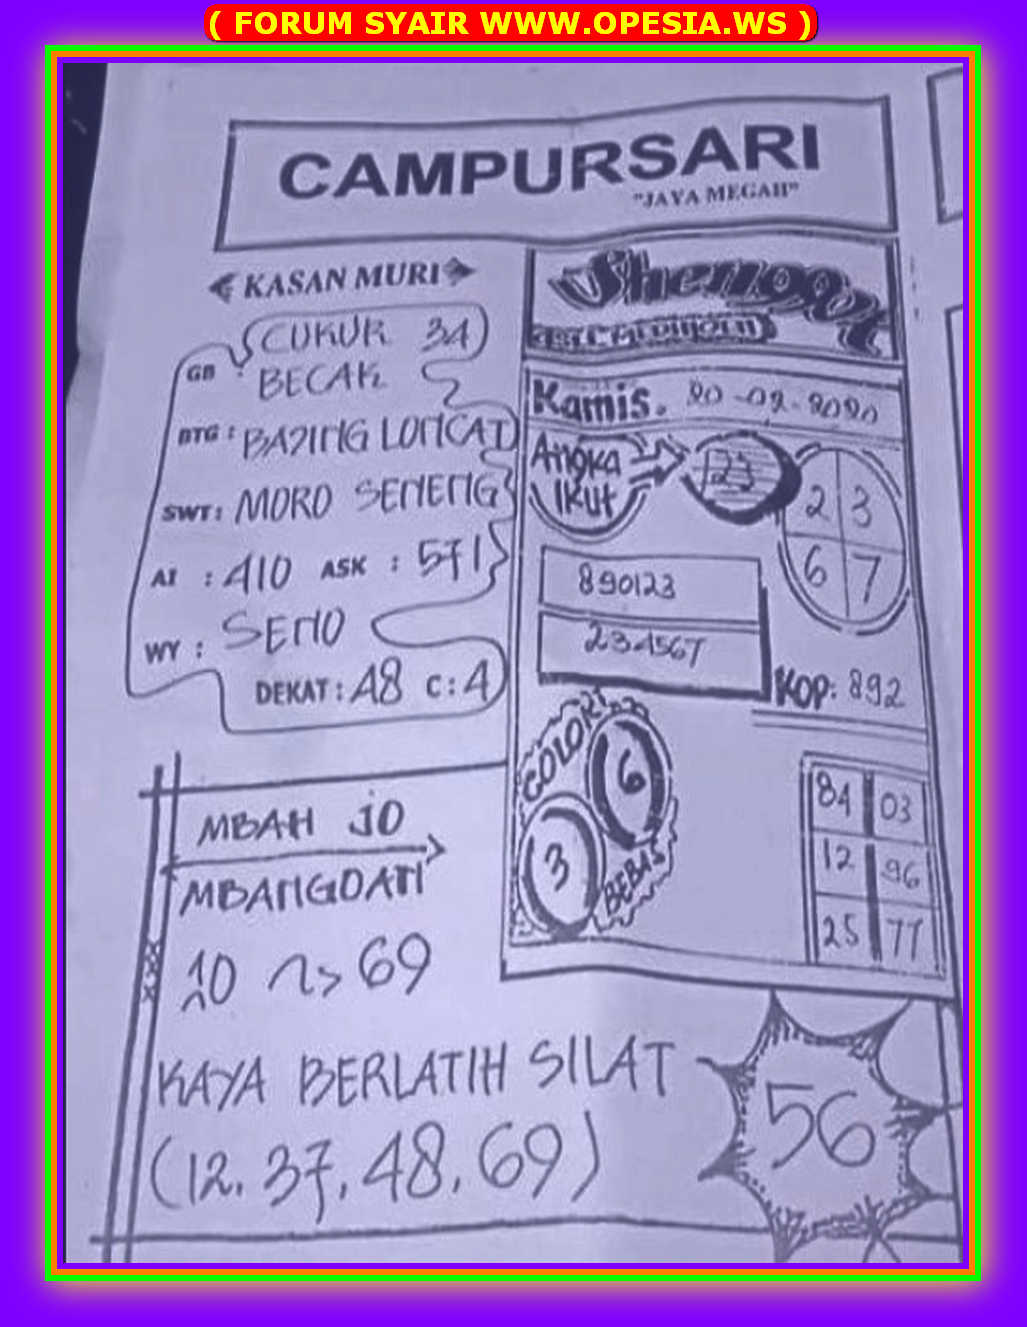 ( FORUM SYAIR WWW.OPESIA.WS )
CAMPURSARI
"JAYA MEGAH"
KASAN MURI
GB : CUKUR 34
BECAK
BTG : BAJING LONCAT
SWT : MORO SENENG
AI : 410 ASK : 571
WY : SENO
DEKAT : 48 C : 4
MBAH JO
MBANGDATI
10 69
KAYA BERLATIH SILAT
(12, 37, 48, 69)
56
Shengqu
Kamis. 20-02-2020
Angka
Ikut
123
2 3
6 7
890123
234567
KOP: 892
COLOK
6
3
BEBAS
84 03
12 96
25 77